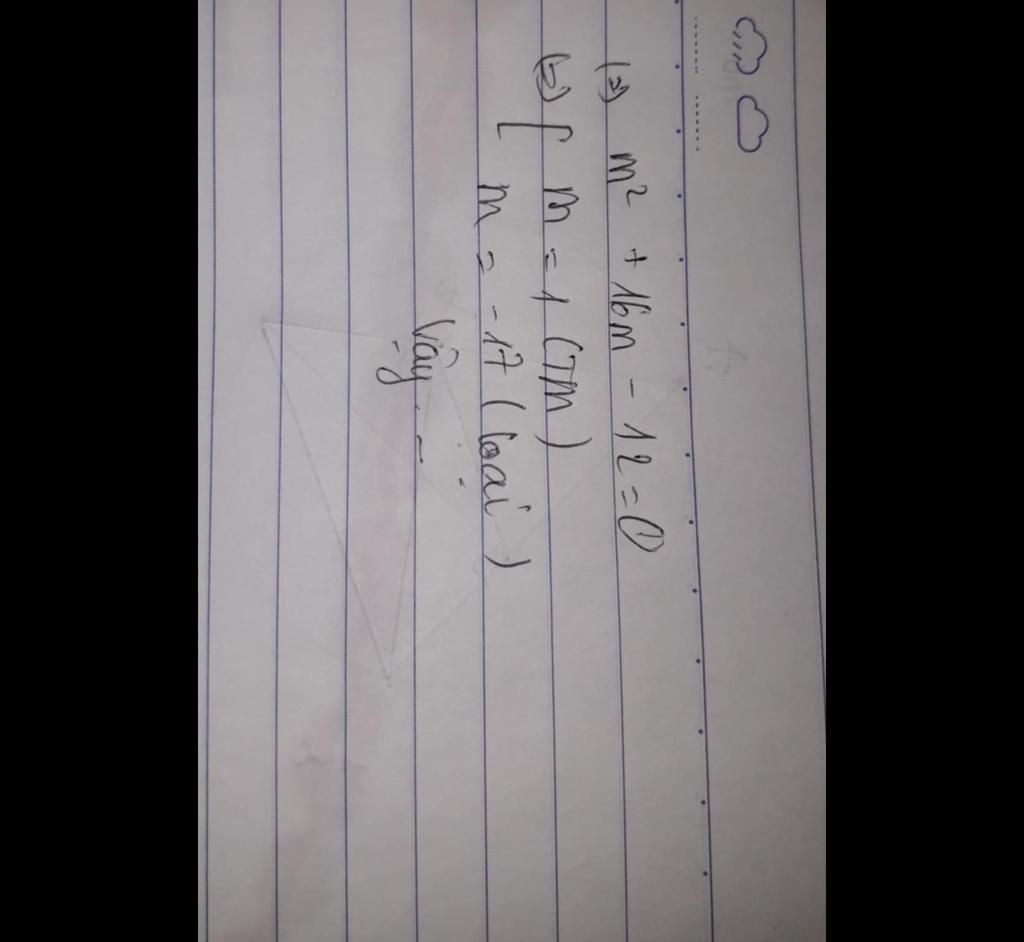 (⇔) m² + 16m - 12 = 0
(⇔) [ m = 1 (TM)
m = -17 (loại)
Vậy . -